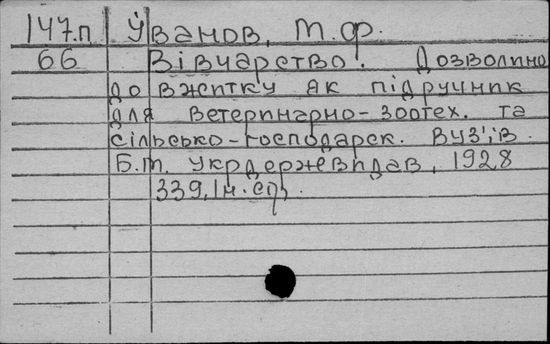 147.п Йванов, М. Ф.
66 Вівчарство. Дозволино
до вжитку як підручник
для ветеринарно-зоотех. та
сільсько-господарск. ВУЗ'ів.
Б.м. Укрдержевидав, 1928
339, Ін. ст.